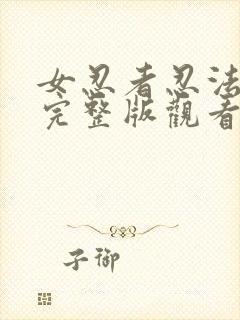 女忍者忍法
完整版觀看
子御